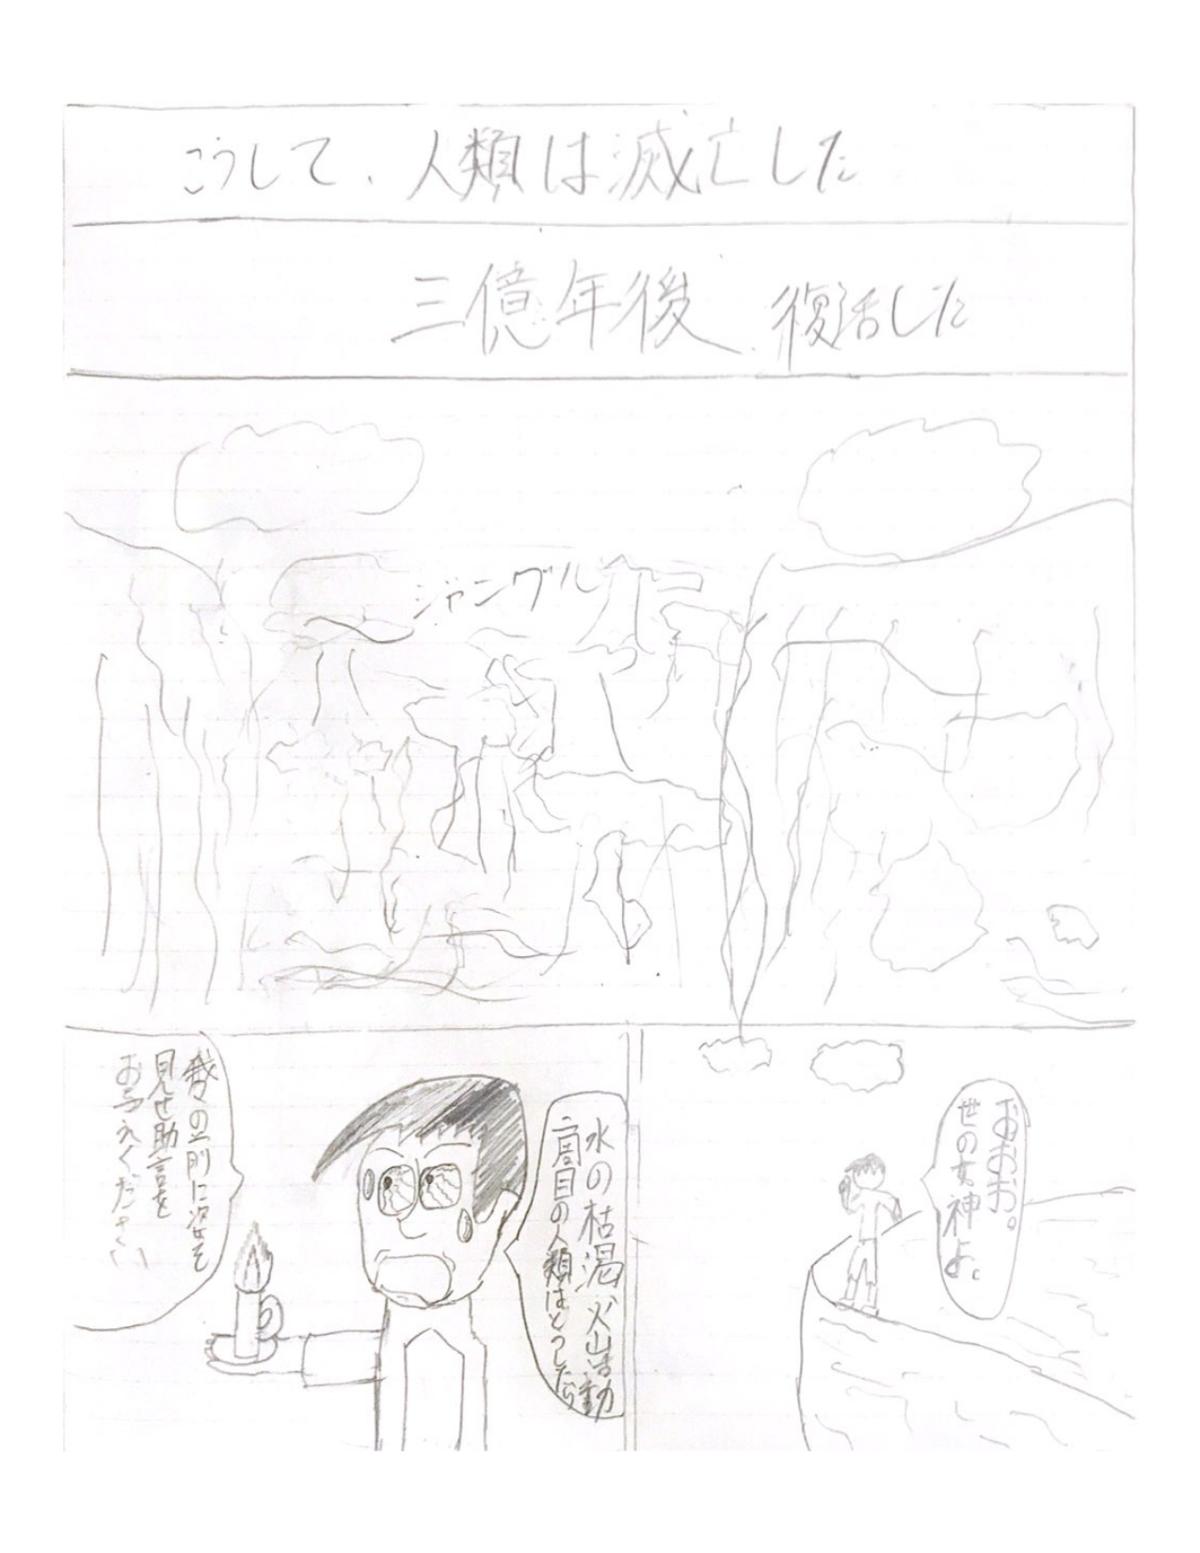 こうして、人類は滅亡した
三億年後 復活した
ジャングル
おおお。
世の女神よ。
水の枯渇、火山活動
二周目の人類はどうしたら
我々の前に姿を
見せ助言を
お与えください